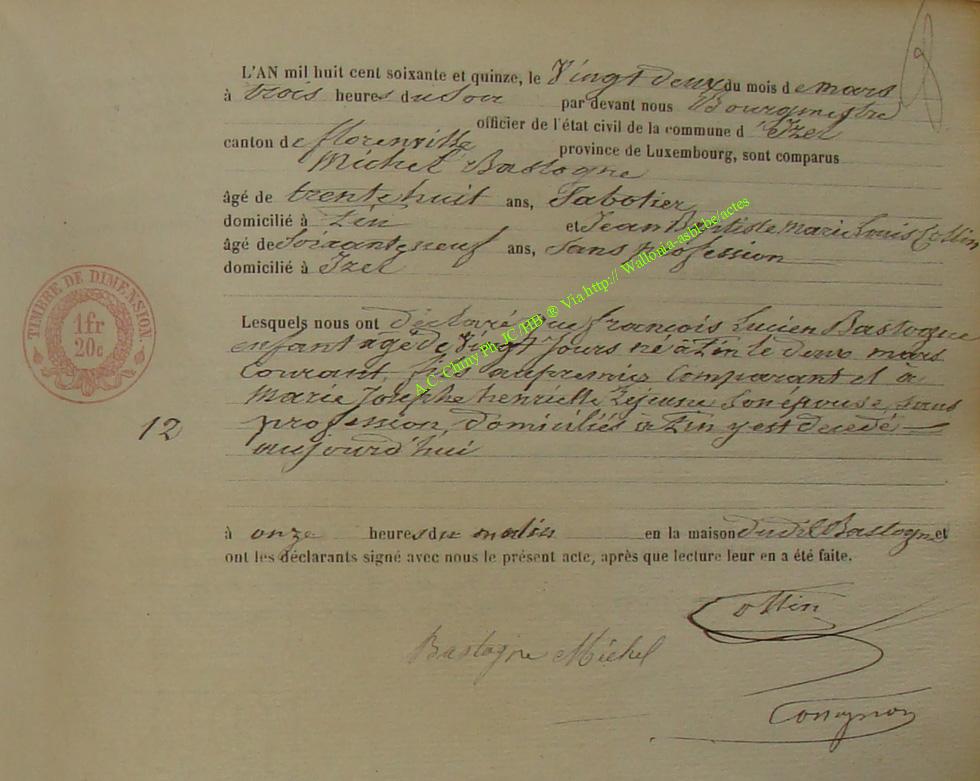 L'AN mil huit cent soixante et quinze, le Vingt deux du mois de mars
à trois heures du Soir par devant nous Bourgmestre
officier de l'état civil de la commune d'Izel
canton de florenville province de Luxembourg, sont comparus
Michel Bastogne
âgé de trente huit ans, Sabotier
domicilié à Pin et Jean Baptiste Marie Louis Collin
âgé de Soixante neuf ans, Sans profession
domicilié à Izel
Lesquels nous ont déclaré que françois Lucien Bastogne
enfant agé de Vingt Jours né à Pin le deux mars
Courant, fils au premier Comparant et à
Marie Josephe henriette Lejeune Son épouse, sans
12 profession, domiciliés à Pin y est décédé
aujourd'hui
à onze heures du matin en la maison dudit Bastogne et
ont les déclarants signé avec nous le présent acte, après que lecture leur en a été faite.
Collin
Bastogne Michel
TIMBRE DE DIMENSION.
1fr
20c
A.C-Chiny Ph JC/HB ® Via http:// Wallonia-asbl-be/actes